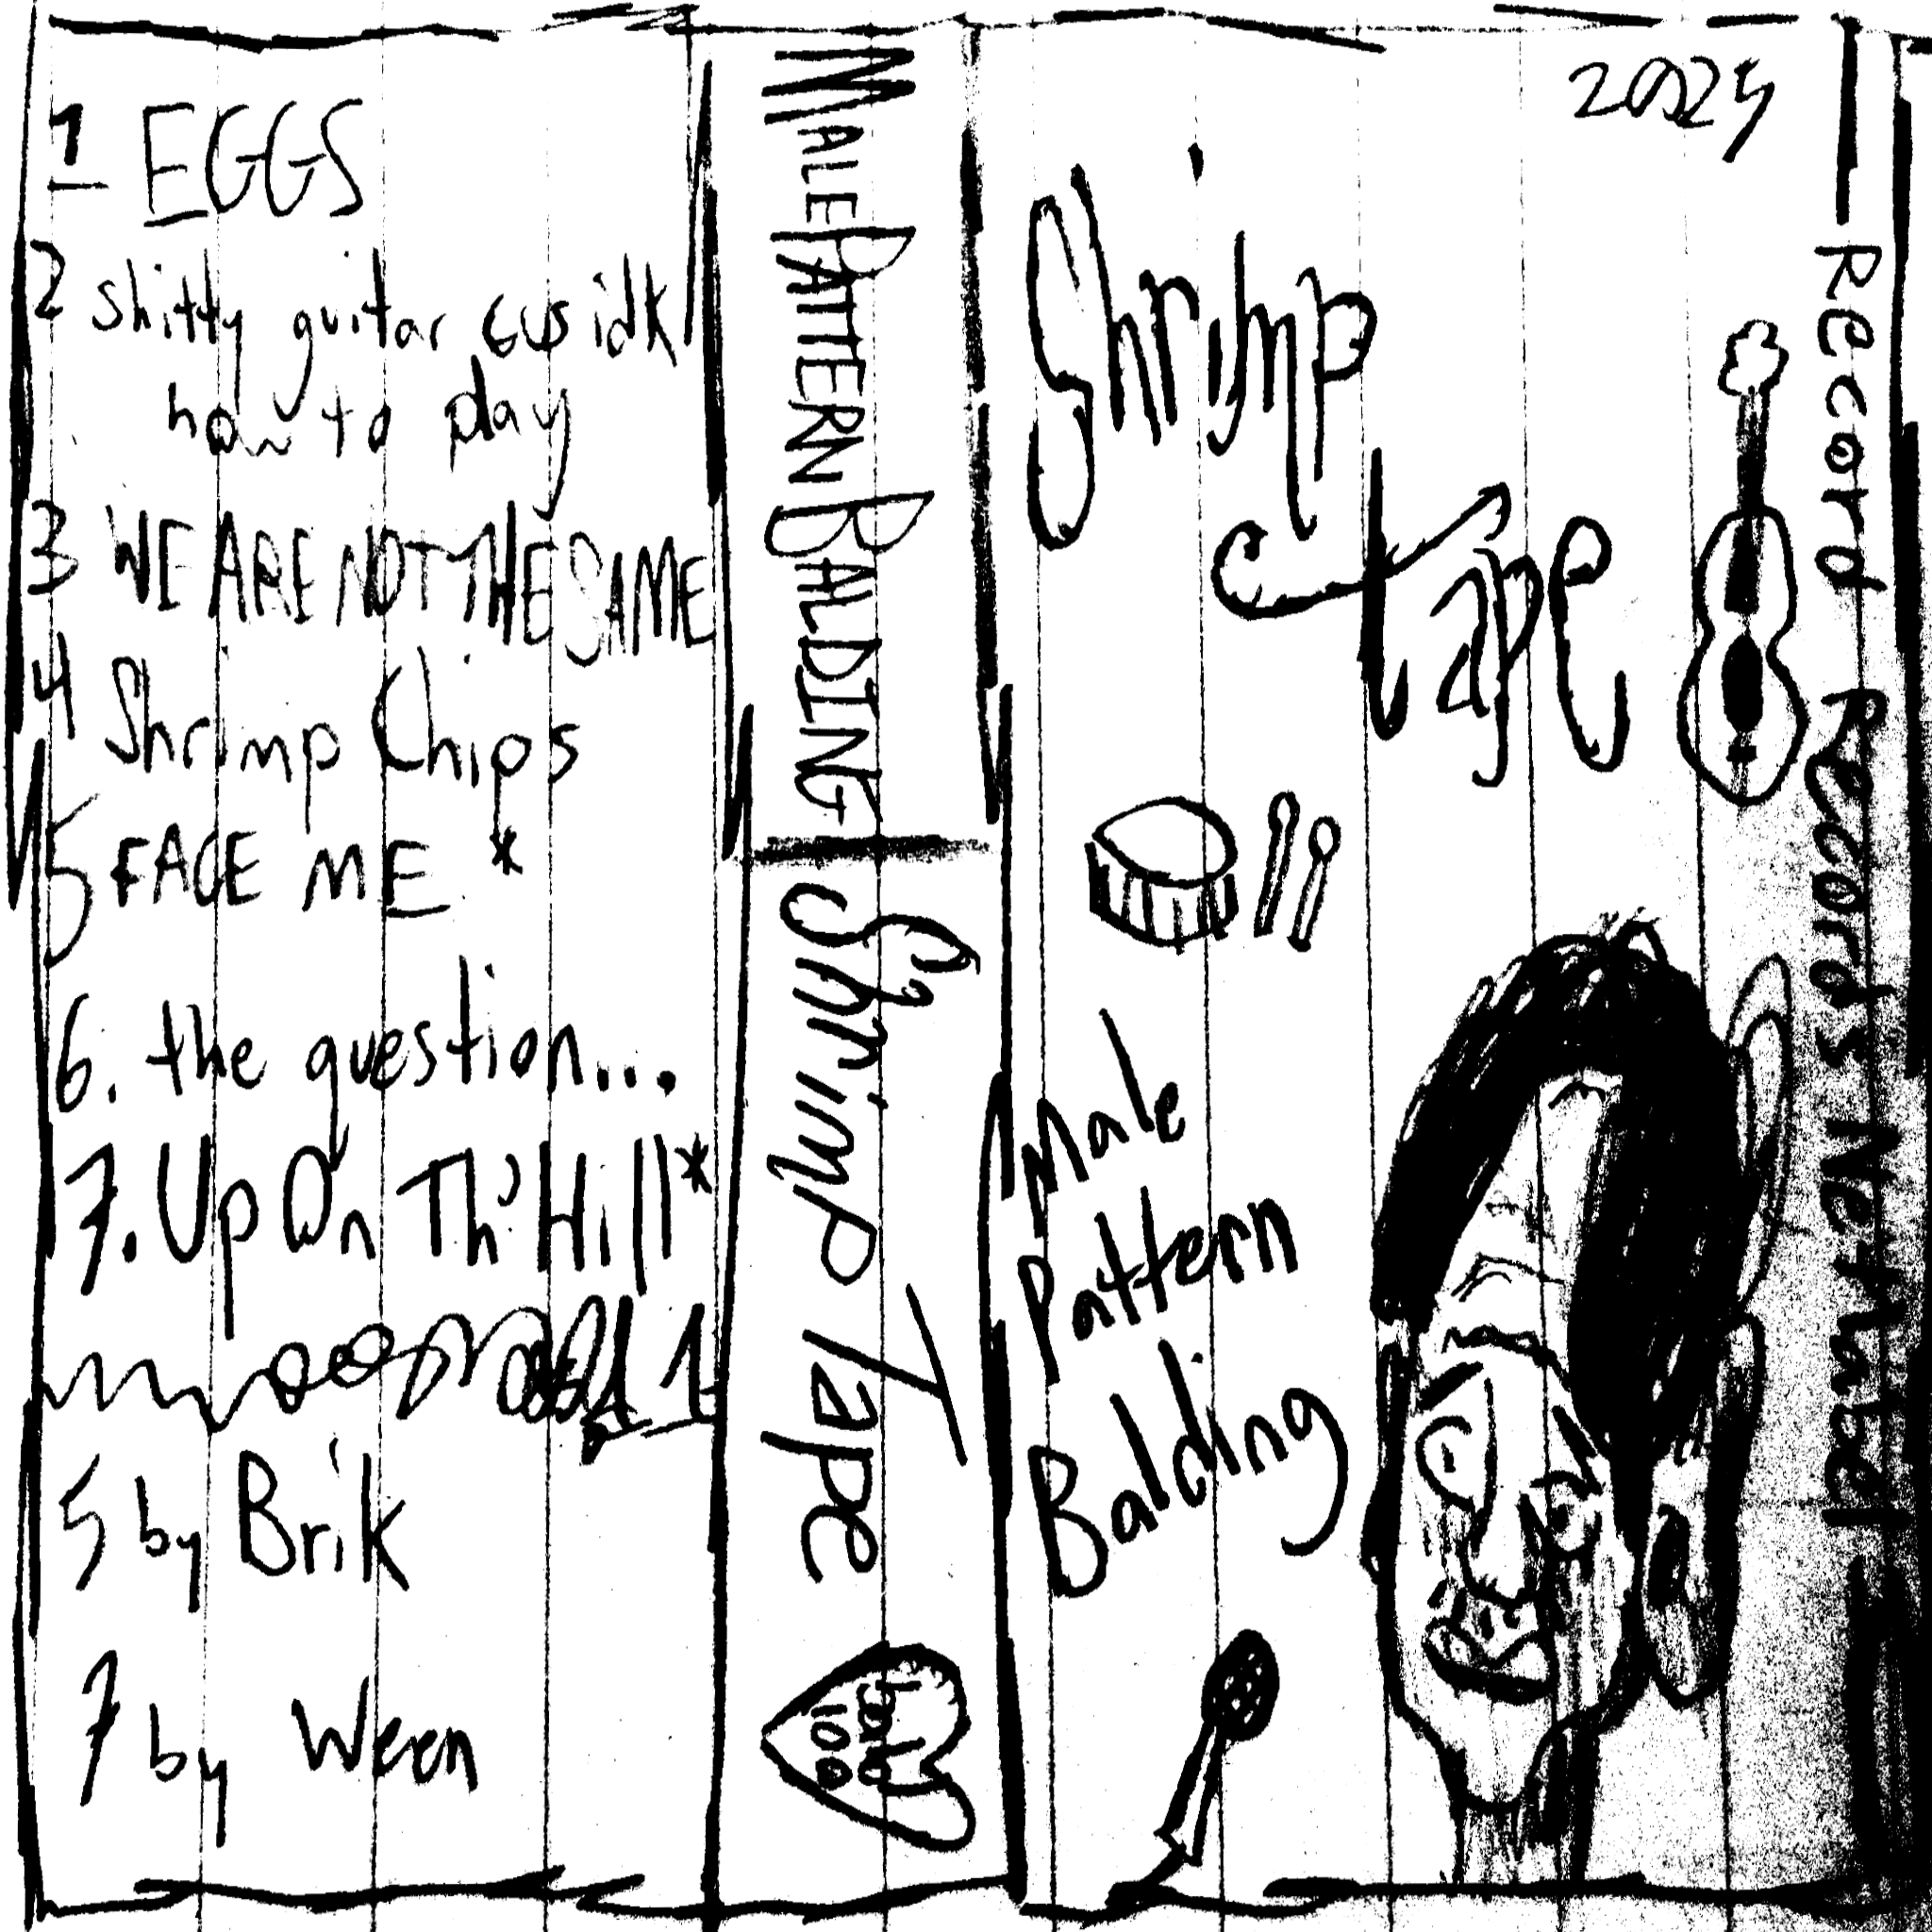 1 EGGS
2 shitty guitar cus idk
how to play
3 WE ARE NOT THE SAME
4 Shrimp Chips
5 FACE ME *
6. the question...
7. Up On Th' Hill*
5 by Brik
7 by Ween
MALE PATTERN BALDING
Shrimp Tape
100
2024
Shrimp
tape
Male
Pattern
Balding
Record Records Network